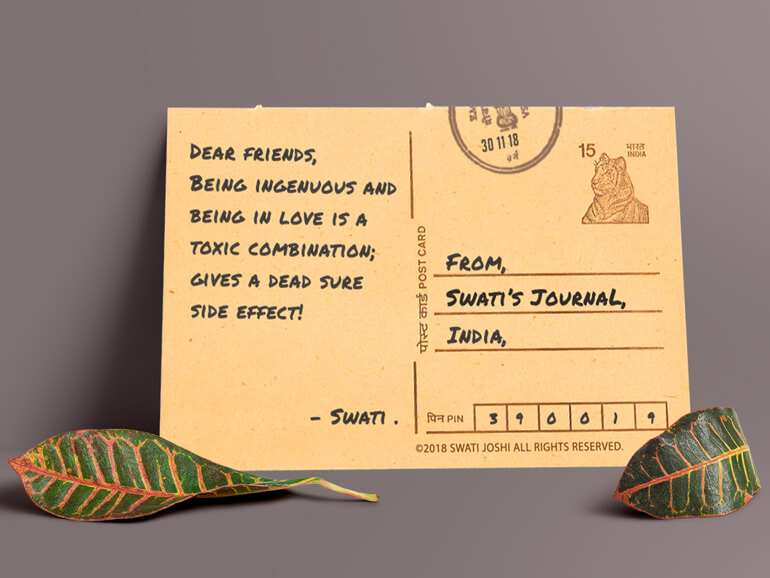 DEAR FRIENDS,
BEING INGENUOUS AND
BEING IN LOVE IS A
TOXIC COMBINATION;
GIVES A DEAD SURE
SIDE EFFECT!
- SWATI .
30 11 18
15 भारत
INDIA
पोस्ट कार्ड POST CARD
FROM,
SWATI'S JOURNAL,
INDIA,
पिन PIN 3 9 0 0 1 9
©2018 SWATI JOSHI ALL RIGHTS RESERVED.